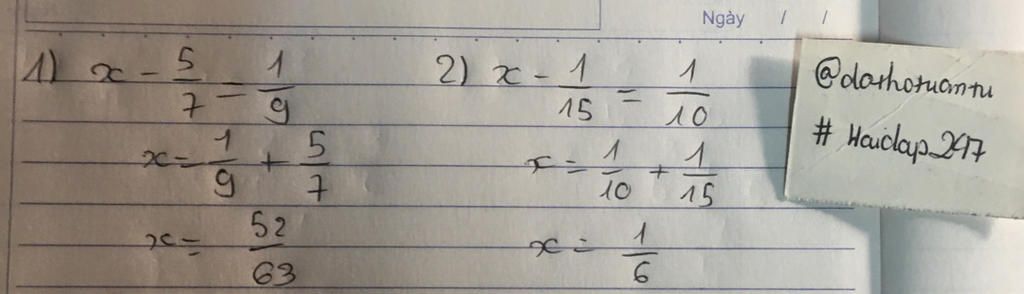 Ngày / /
1) x - 5/7 = 1/9
x = 1/9 + 5/7
x = 52/63
2) x - 1/15 = 1/10
x = 1/10 + 1/15
x = 1/6
@dathotuantu
# Haidap247